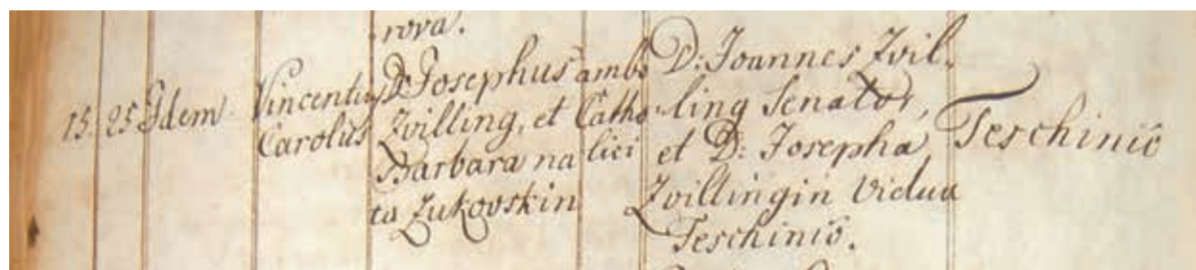 15.
25
Idem
Vincentius
Carolus
rova.
D: Josephus
Zvilling, et
Barbara na
ta Zukovskin
ambo
Catho
lici
D: Joannes Zvil-
ling Senator,
et D: Josepha
Zvillingin Vidua
Teschinió.
Teschinió